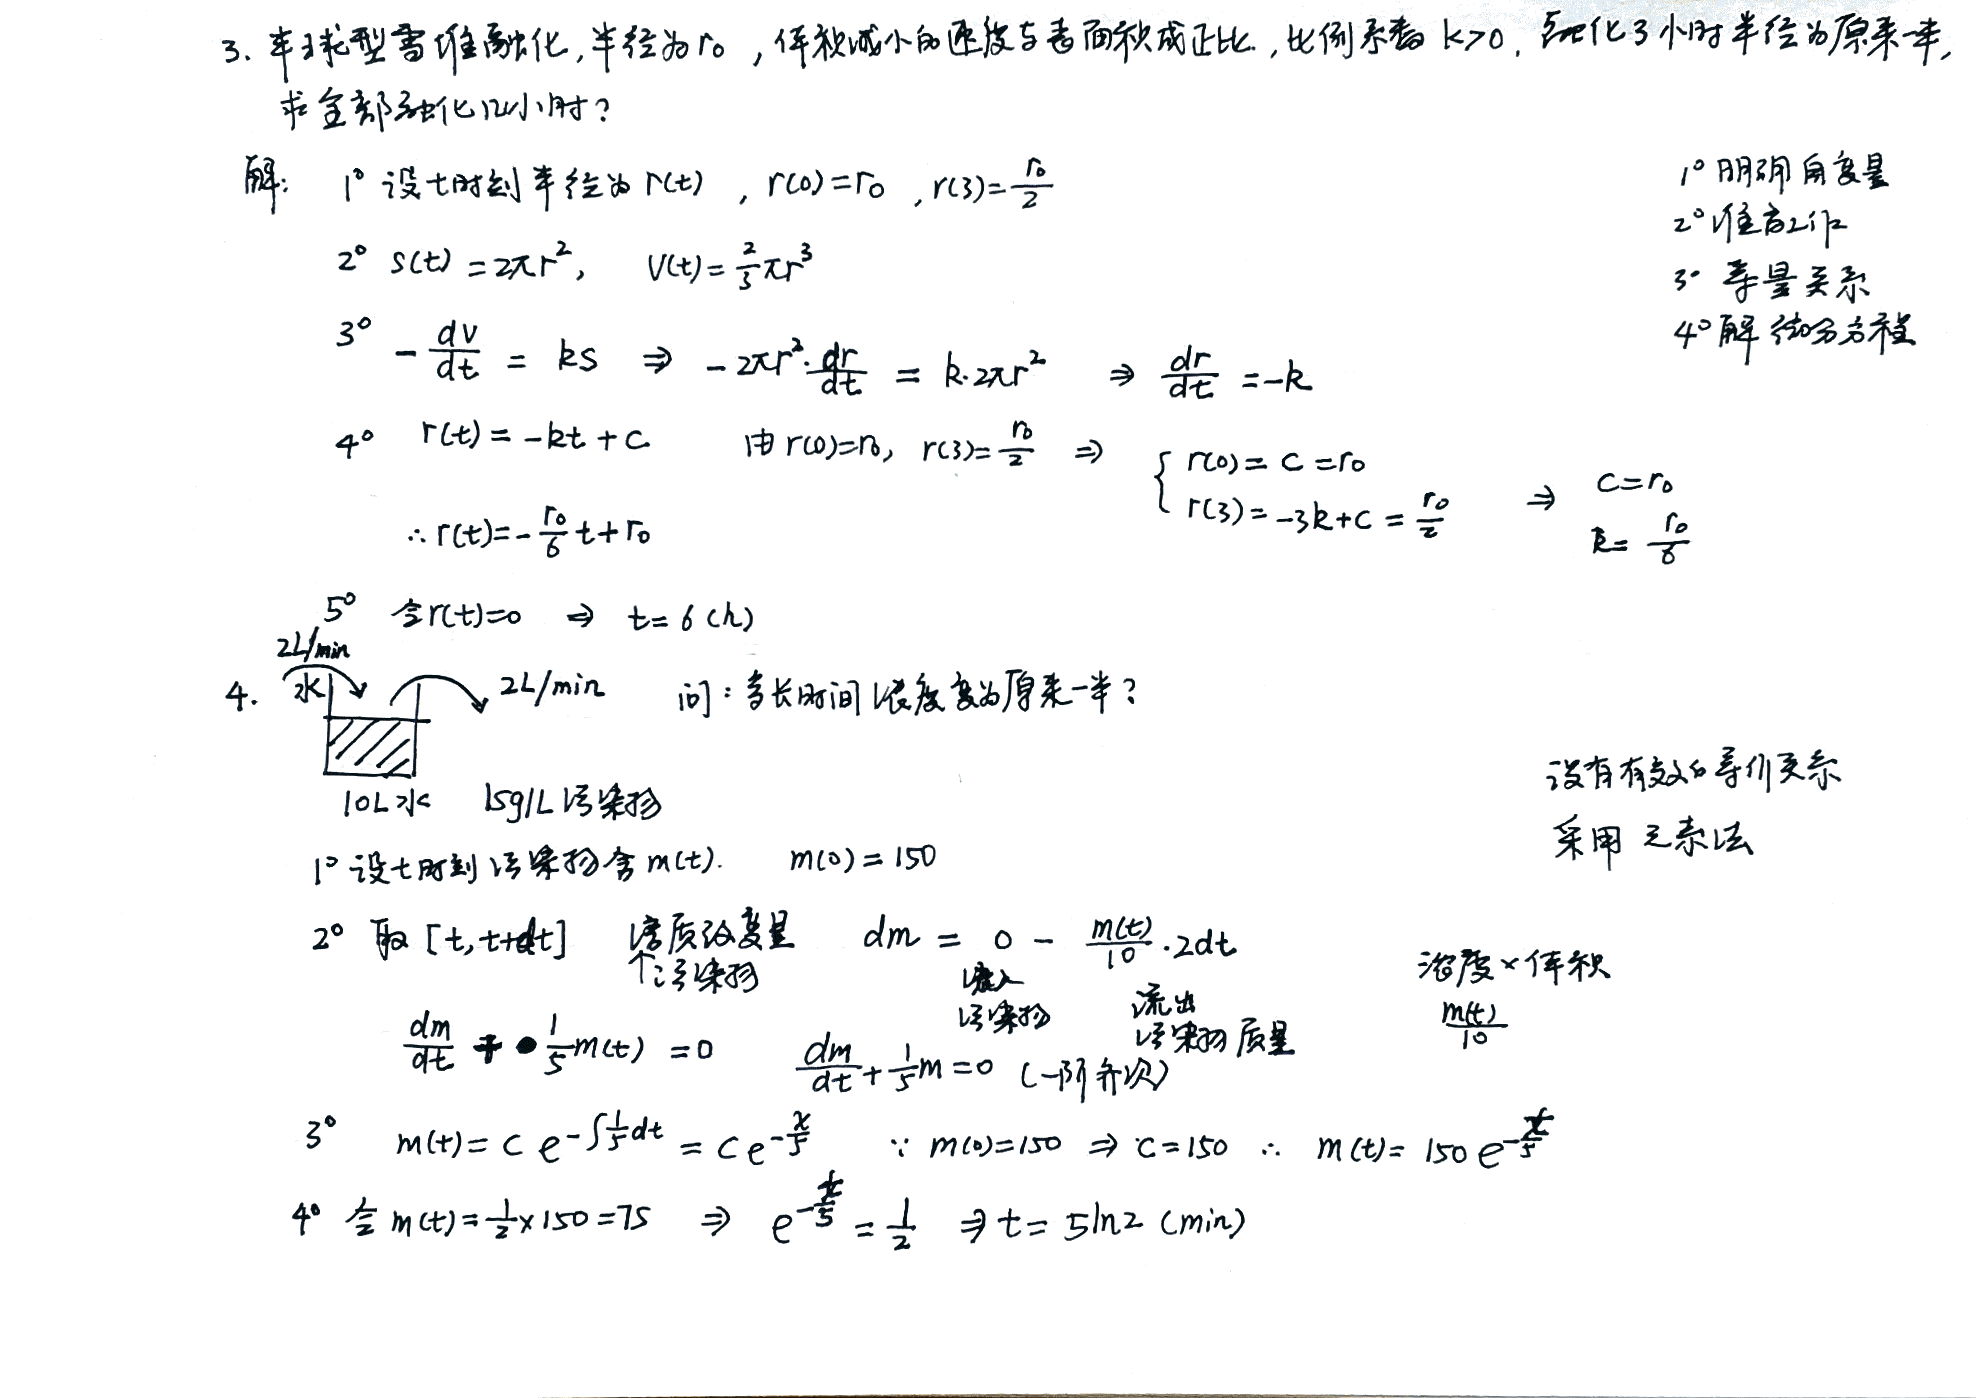 3. 半球型雪堆融化,半径为r₀,体积减小的速度与表面积成正比,比例系数k>0,融化3小时半径为原来一半,
求全部融化几小时?
解: 1° 设t时刻半径为r(t), r(0)=r₀, r(3)=r₀/2
1° 明确自变量
2° 准备工作
3° 等量关系
4° 解微分方程
2° S(t)=2πr², V(t)=2/3πr³
3° -dV/dt = kS ⇒ -2πr²·dr/dt = k·2πr² ⇒ dr/dt=-k
4° r(t)=-kt+C 由r(0)=r₀, r(3)=r₀/2 ⇒ { r(0)=C=r₀ r(3)=-3k+C=r₀/2 ⇒ C=r₀ k=r₀/6
∴ r(t)=-r₀/6 t+r₀
5° 令r(t)=0 ⇒ t=6(h)
4. 2L/min 水 2L/min 问:多长时间浓度变为原来一半?
10L水 15g/L污染物
没有有效的等价关系
采用元素法
1° 设t时刻污染物含m(t). m(0)=150
2° 取[t,t+dt] 溶质改变量 dm = 0 - m(t)/10·2dt
↑污染物 流入污染物 流出污染物质量
浓度×体积
m(t)/10
dm/dt + 1/5m(t)=0 dm/dt+1/5m=0 (一阶齐次)
3° m(t)=Ce^(-∫1/5dt)=Ce^(-x/5) ∵ m(0)=150 ⇒ C=150 ∴ m(t)=150e^(-t/5)
4° 令m(t)=1/2×150=75 ⇒ e^(-t/5)=1/2 ⇒ t=5ln2 (min)